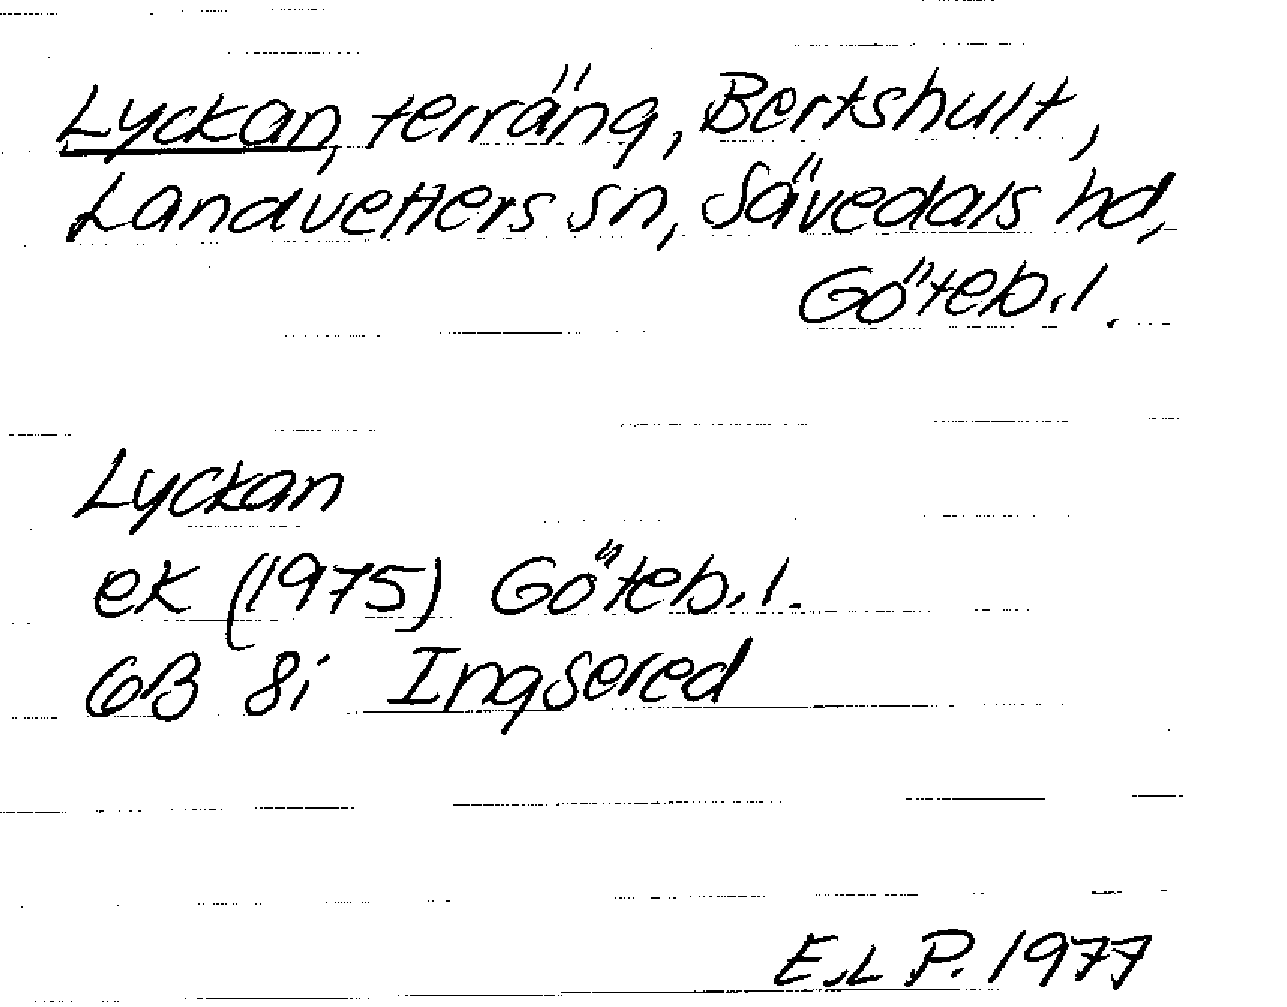 Lyckan, terräng, Bertshult,
Landvetters sn, Sävedals hd,
Göteb.l.
Lyckan
ek (1975) Göteb.l.
6B 8i Ingsered
E.L P. 1977